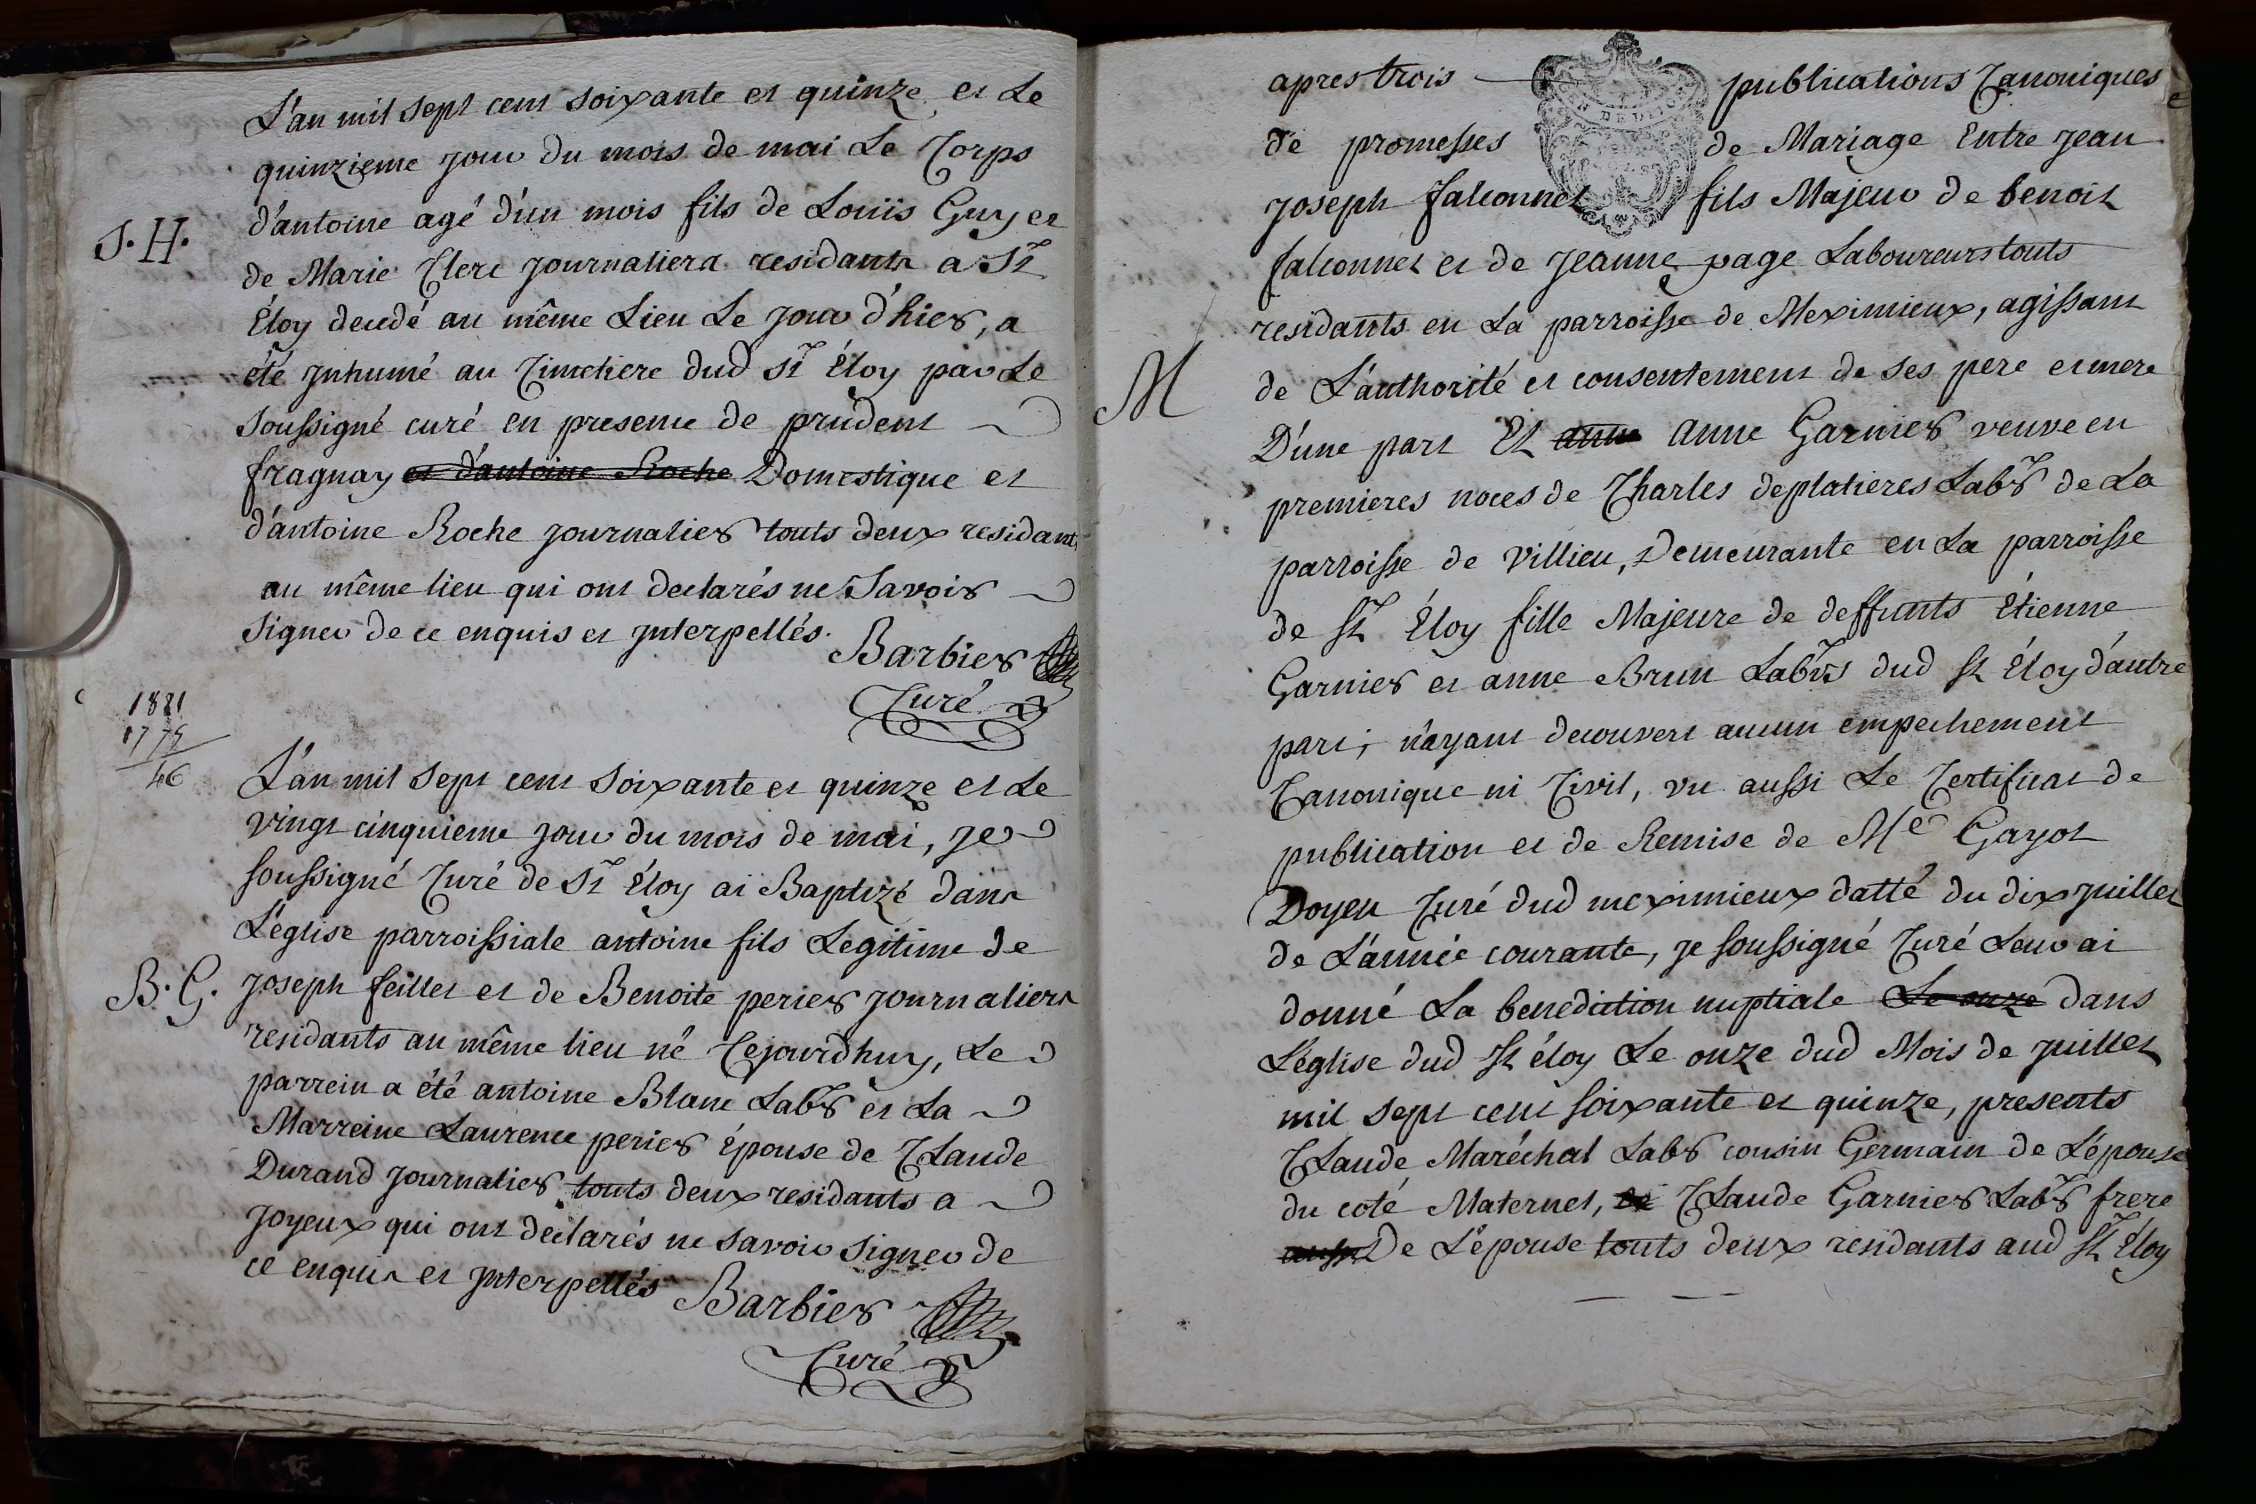 L'an mil sept cent soixante et quinze et Le
quinzieme jour du mois de mai Le Corps
d'antoine agé d'un mois fils de Louis Guy et
S. H.
de Marie Clerc journaliers residants a St
Éloy decedé au même Lieu Le jour d'hier, a
été inhumé au Cimetiere dud St Éloy par Le
soussigné curé en presence de prudent
fragnay et d'antoine Roche Domestique et
d'antoine Roche journalier touts deux residants
au même lieu qui ont declarés ne Savoir
signer de ce enquis et interpellés.
Barbier
Curé
1821
1775
46
L'an mil sept cent soixante et quinze et Le
vingt cinquieme jour du mois de mai, je
soussigné Curé de St Éloy ai Baptizé dans
L'église parroissiale antoine fils Legitime de
B. G.
joseph feillet et de Benoite perier journaliers
residants au même lieu né Cejourdhuy, Le
parrein a été antoine Blanc Labr et La
Marreine Laurence perier Épouse de Claude
Durand journalier touts deux residants a
joyeux qui ont declarés ne savoir signer de
ce enquis et interpellés
Barbier
Curé
apres trois publications Canoniques
de promesses de Mariage Entre jean
joseph falconnet fils Majeur de benoit
falconnet et de jeanne page Laboureurs touts
residants en La parroisse de Meximieux, agissant
M
de L'authorité et consentement de ses pere et mere
D'une part Et anne anne Garnier veuve en
premieres noces de Charles deplatieres Labr de La
parroisse de Villieu, Demeurante en La parroisse
de St Éloy fille Majeure de deffunts Étienne
Garnier et anne Brun Labrs dud St Éloy d'autre
part; n'ayant decouvert aucun empechement
Canonique ni Civil, vu aussi Le Certificat de
publication et de Remise de Me Gayot
Doyen Curé dud meximieux datté du dix juillet
de L'année courante, je soussigné Curé Leur ai
donné La benediction nuptiale Le onze dans
L'église dud St éloy Le onze dud Mois de juillet
mil sept cent soixante et quinze, presents
Claude Maréchal Labr cousin Germain de L'épouse
du coté Maternel, et Claude Garnier Labr frere
aussi De L'épouse touts deux residants aud St Éloy